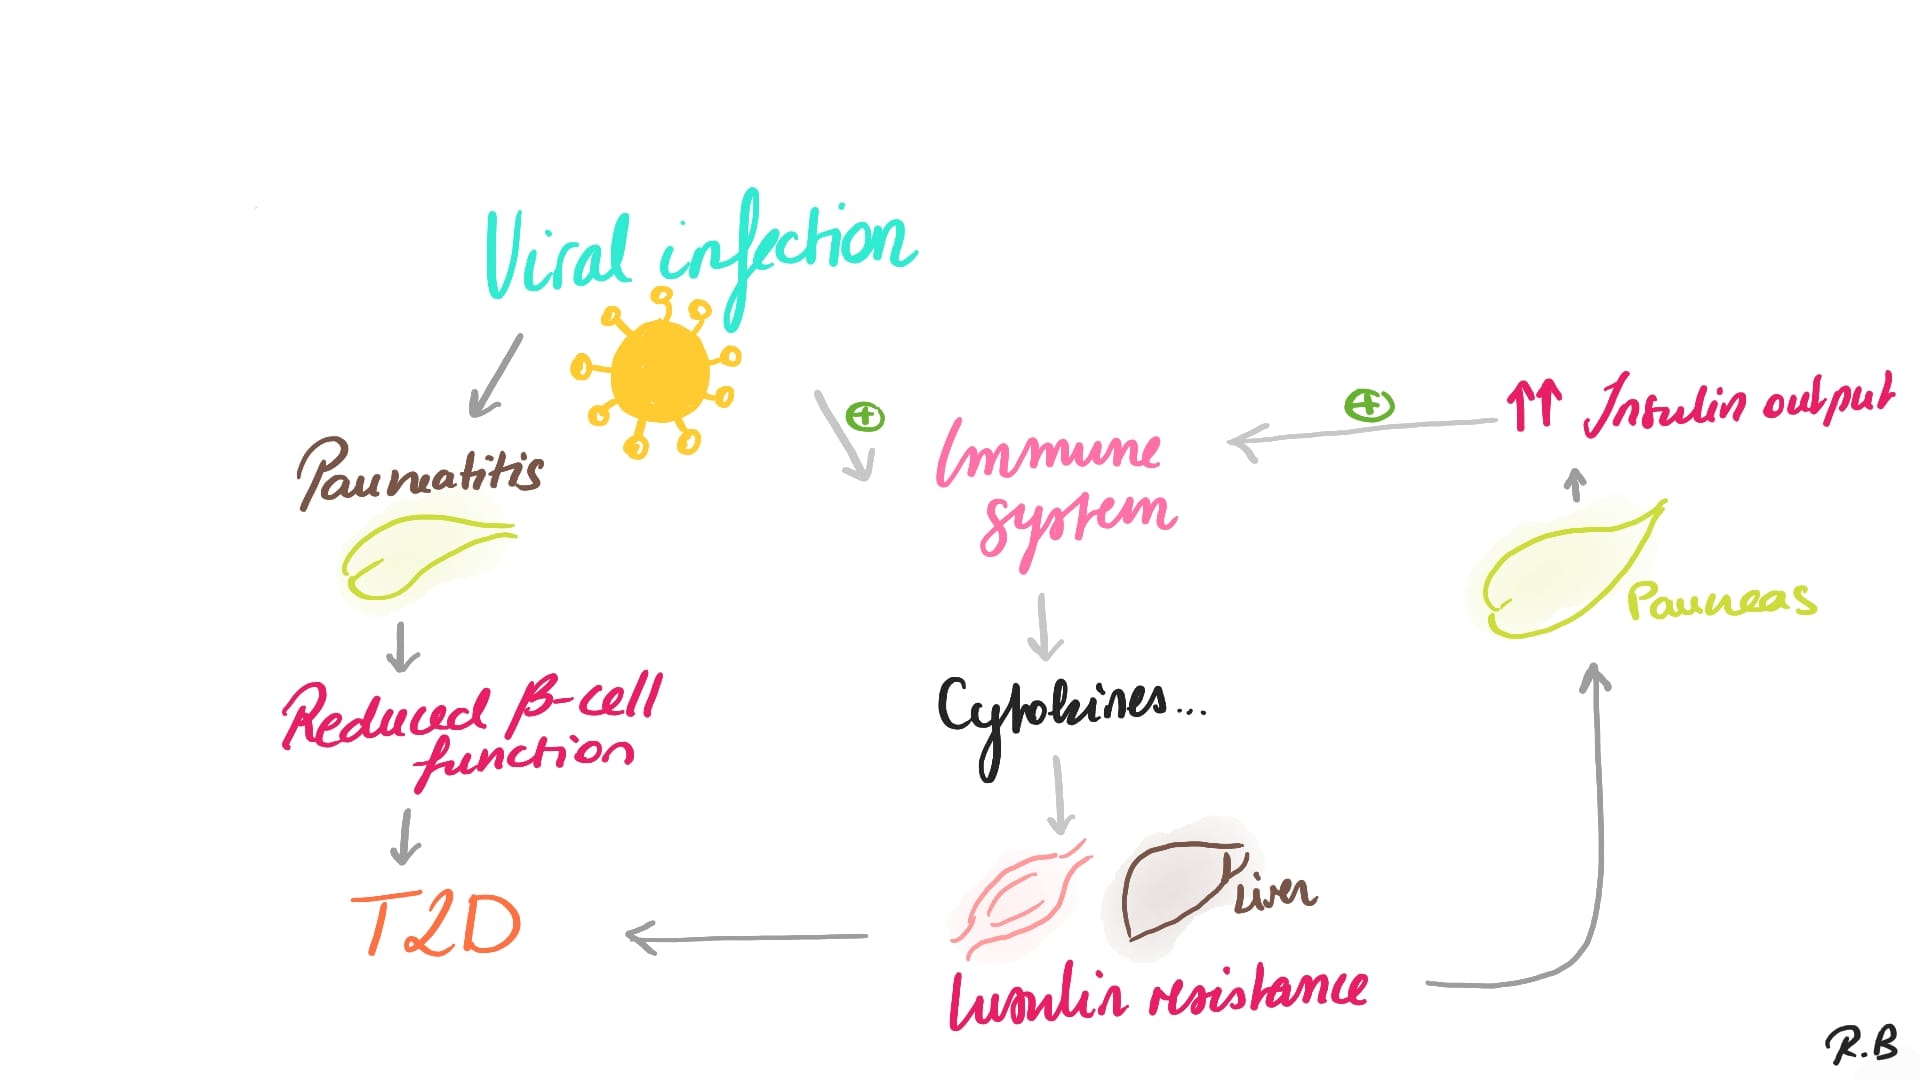 Viral infection
Pancreatitis
Reduced β-cell
function
T2D
+
Immune
system
Cytokines...
Liver
Insulin resistance
+
↑↑ Insulin output
Pancreas
R.B